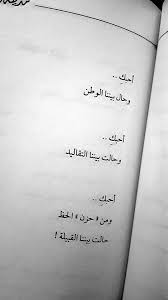 أحبك ..
وحال بيننا الوطن
أحبك ..
وحالت بيننا التقاليد
أحبك ..
ومن « حزن » الحظ
حالت بيننا القبيلة !